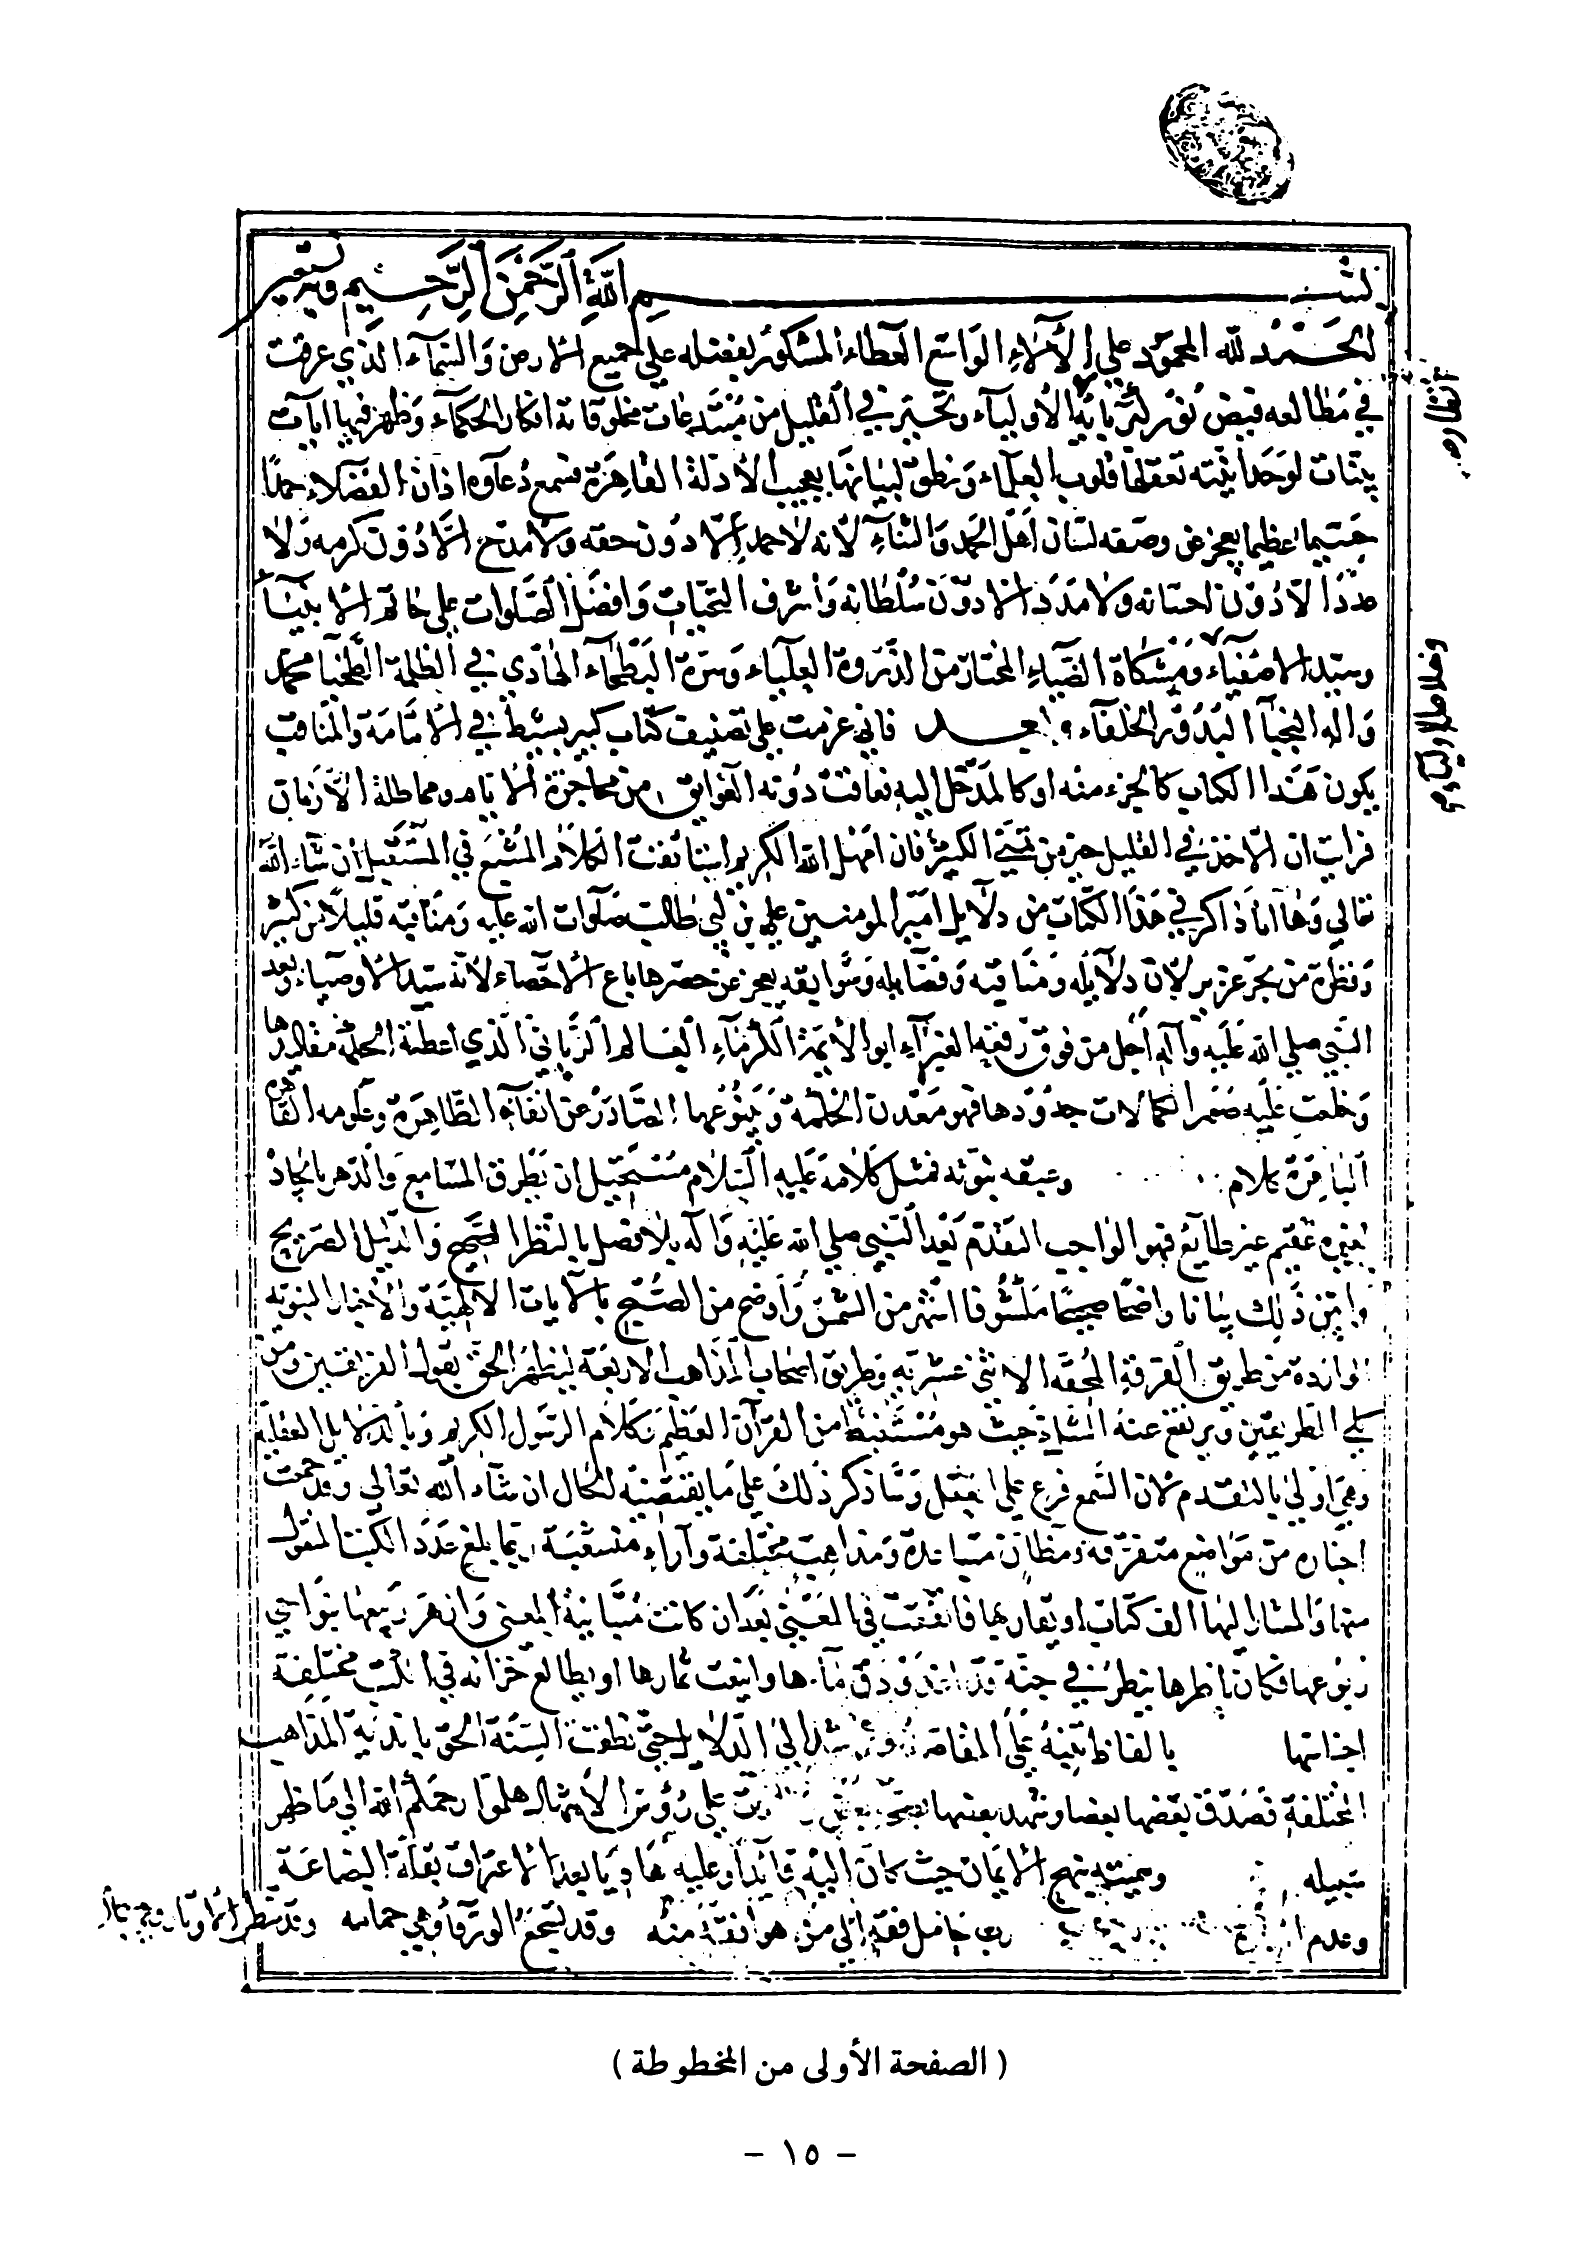 بسم الله الرحمن الرحيم وبه نستعين
الحمد لله المحمود على الآلاء الواسع العطاء المشكور بفضله على جميع الارض والسماء الذي غرقت
في مطالعه فيض نور كبريائه الأولياء وتحير في القليل من مبتدعات مخلوقاته افكار الحكماء وظهر فيها آيات
بينات لوحدانيته تعقلها قلوب العلماء ونطق لبيانها بعجيب الأدلة القاهرة فسمع دعاوه اذان الفضلاء حمدًا
جسيما عظيما يعجز عن وصفه لسان أهل الحمد والثناء لأنه لا حمد إلا دون حقه ولا مدح الا دون كرمه ولا
عدد الا دون احسانه ولا مدد الا دون سلطانه وأشرف التحيات وافضل الصلوات على خاتم الانبياء
وسيد الاصفياء ومشكاة الضياء المختار من الذروة العلياء وسرة البطحاء الهادي في الظلمة الطخيا محمد
وآله النجباء البدور الخلفاء وبعد فاني عزمت على تصنيف كتاب كبير بسيط في الامامة والمناقب
يكون هذا الكتاب كالجزء منه او كالمدخل اليه فعاقت دونه العوايق من محاجزة الايام ومماطلة الأزمان
فرايت ان الاخذ في القليل خير من تمني الكثير فان امهل الله الكريم استأنفت الكلام المشبع في المستقبل إن شاء الله
تعالى وها أنا ذاكر في هذا الكتاب من دلايل امير المومنين علي بن ابي طالب صلوات الله عليه ومناقبه قليلا من كثير
وقطرة من بحر غزير لأن دلايله ومناقبه وفضايله وسوابقه يعجز عن حصرها باع الاحصاء لأنه سيد الاوصياء وبعد
النبي صلى الله عليه وآله أجل من فوق رقعة الغبراء ابو الأئمة الكرماء العالم الرباني الذي اعطته الحكمة مقاليدها
وخلعت عليه الكمالات حدودها فهو معدن الحكمة وينبوعها الصادر عن انفاسه الطاهرة وعلومه القاهرة
الباهرة كلام وعبقه نبوته فمثل كلامه عليه السلام مستحيل ان يطرق المسامع والدهر بايجاد
غيره عقيم غير طايع فهو الواجب التقدم بعد النبي صلى الله عليه وآله بلا فصل بالنظر الصحيح والدليل الصريح
وابين ذلك بيانا واضحا صحيحا مكشوفا اشهر من الشمس وأوضح من الصبح بالآيات الالهية والأخبار النبوية
الواردة من طريق الفرقة المحقة الاثنى عشرية وطريق اصحاب المذاهب الاربعة ليظهر الحق بقول الفريقين ومن
كلي الطريقين ويرتفع عنه الشك حيث هو مستنبط من القرآن العظيم وكلام الرسول الكريم وبالدلايل العقلية
وهي اولى بالتقدم لان السمع فرع على العقل وسأذكر ذلك على ما يقتضيه الحال ان شاء الله تعالى وقد جمعت
اخباره من مواضع متفرقة ومظان متباعدة ومذاهب مختلفة وآراء متشعبة ربما يبلغ عدد الكتب المنقول
منها والمشار اليها الف كتاب او يقاربها فاتفقت في المعنى بعد ان كانت متباينة المعنى وازهر ربيعها بنواحي
ربوعها فكان ناظرها ينظر في جنة قد ماءها واينعت ثمارها او يطالع خزانة في الكتب مختلفة
اجناسها بالفاظ بينة على المقاصد الى الدلايل حتى نطقت السنة الحق باندية المذاهب
المختلفة فصدق بعضها بعضا وشهد بعضها على رؤس الأشهاد هلموا رحمكم الله الى ما ظهر
سبيله بنهج الايمان حيث كان اليه قائدا وعليه هاديا بعد الاعتراف بقلة البضاعة
وعدم رب حامل فقه إلى من هو أفقه منه وقد تسجع الورقا وهي حمامه وقد تنطق الاوتار وهي جماد
( الصفحة الأولى من المخطوطة )
- ١٥ -